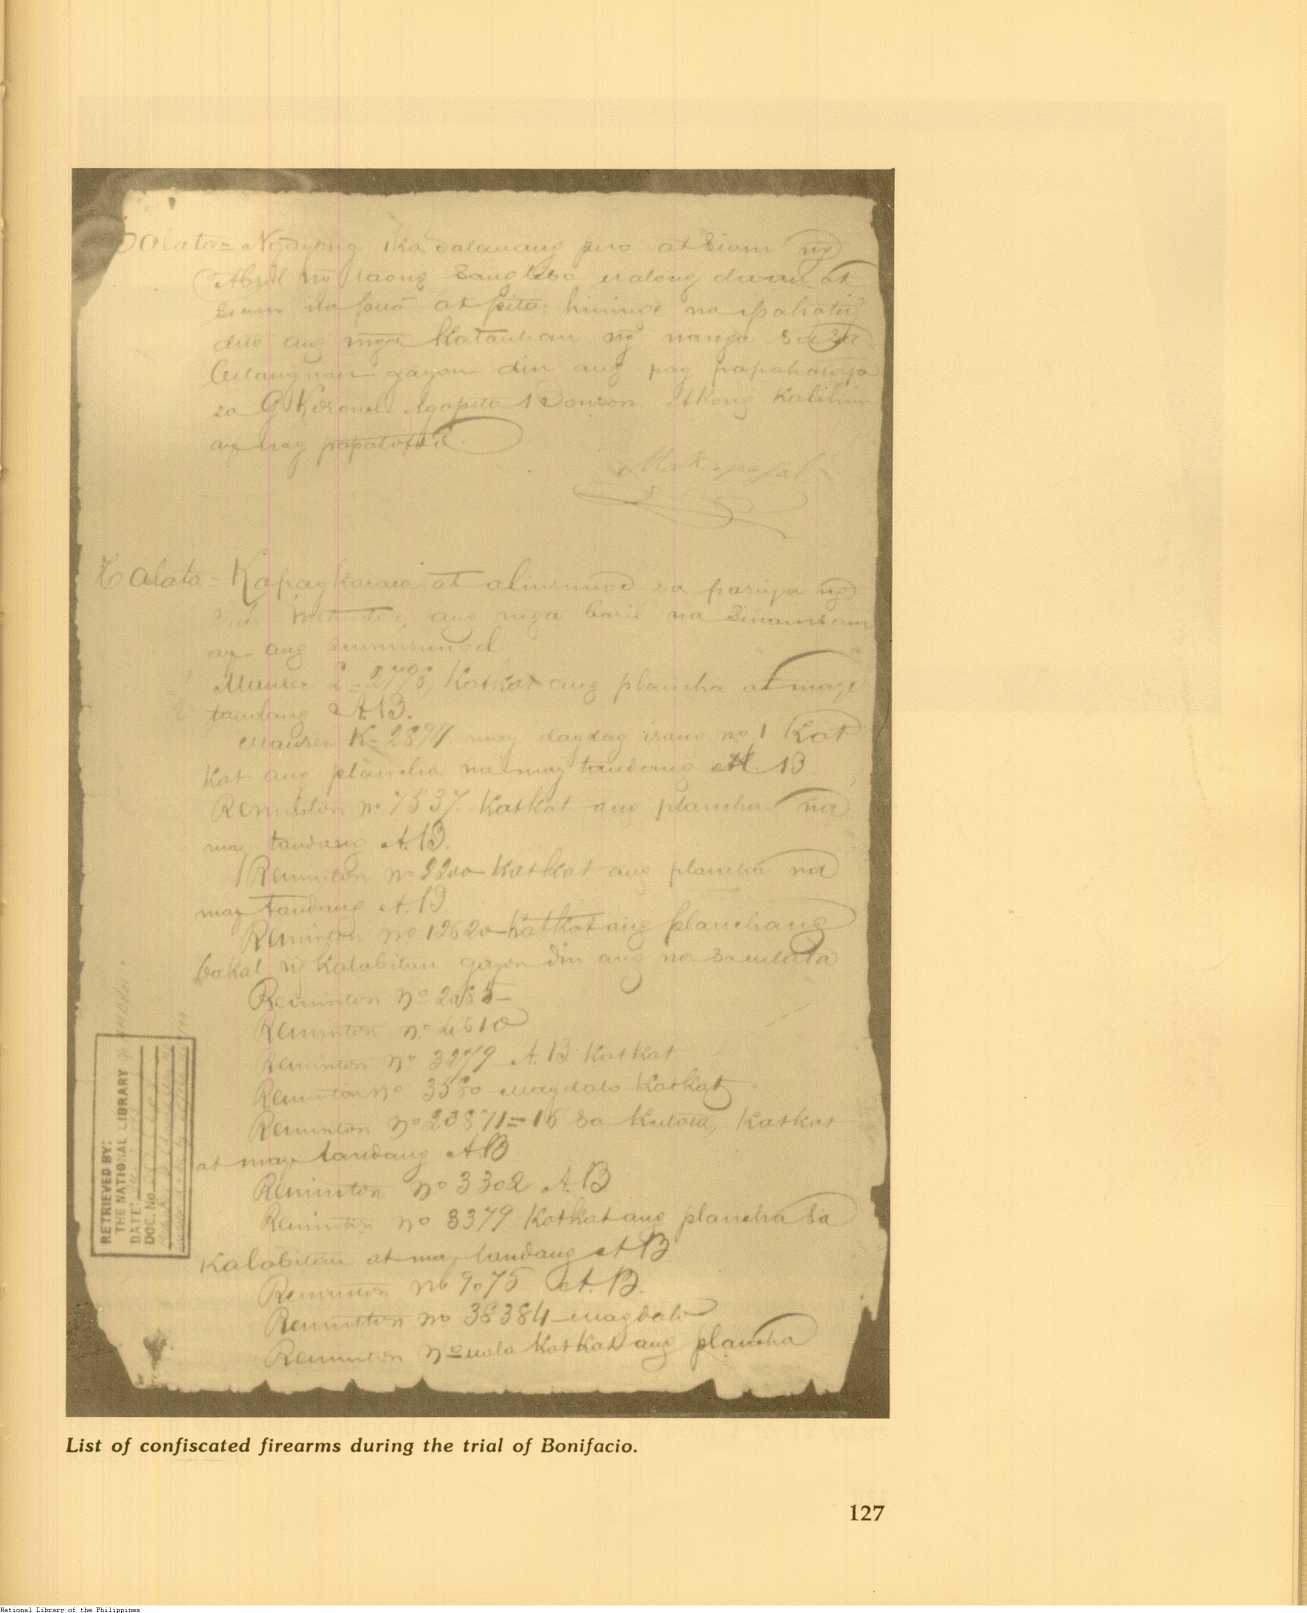 Talata = Ngayong ika dalawang puo at Siam ng
Abril ng taong Sang libo ualong daan at
Siam na puo at pito hiningi na ipahatid
dito ang mga Katauhan ng nanga
gayon din ang pag papahatid
sa G Koronel Agapito Bonson Akong Kalihim
ay nag papatotoo
Makapagal
Talata - Kapagkaraca at alinsunod sa pasiya ng
ang mga baril na Sinamsam
ay ang sumusunod
Mauser L = 2778, Katkat ang plancha at may
tandang A.B.
Mauser K = 2874 may dagdag isang no 1 Kat
kat ang plancha na may tandang A. B
Reminton No 7537. Katkat ang plancha na
may tandang A.B.
Reminton No 2200 Katkat ang plancha na
may tandang A.B
Reminton No 12620 - Katkat ang planchang
bakal ng Kalabitan gayon din ang na
Reminton No
Reminton No 4610
Reminton No 3279 A.B Katkat
Reminton No 3580 Magdalo Katkat
Reminton No 23871=15 Sa Kulata, Katkat
at may tandang A.B
Reminton No 3302 A.B
Reminton No 3379 Katkat ang plancha Sa
Kalabitan at may tandang A B
Reminton No 9075 A.B.
Reminton No 38384 Magdalo
Reminton No wala Katkat ang plancha
RETRIEVED BY:
THE NATIONAL LIBRARY
DATE:
DOC. No.
List of confiscated firearms during the trial of Bonifacio.
127
National Library of the Philippines